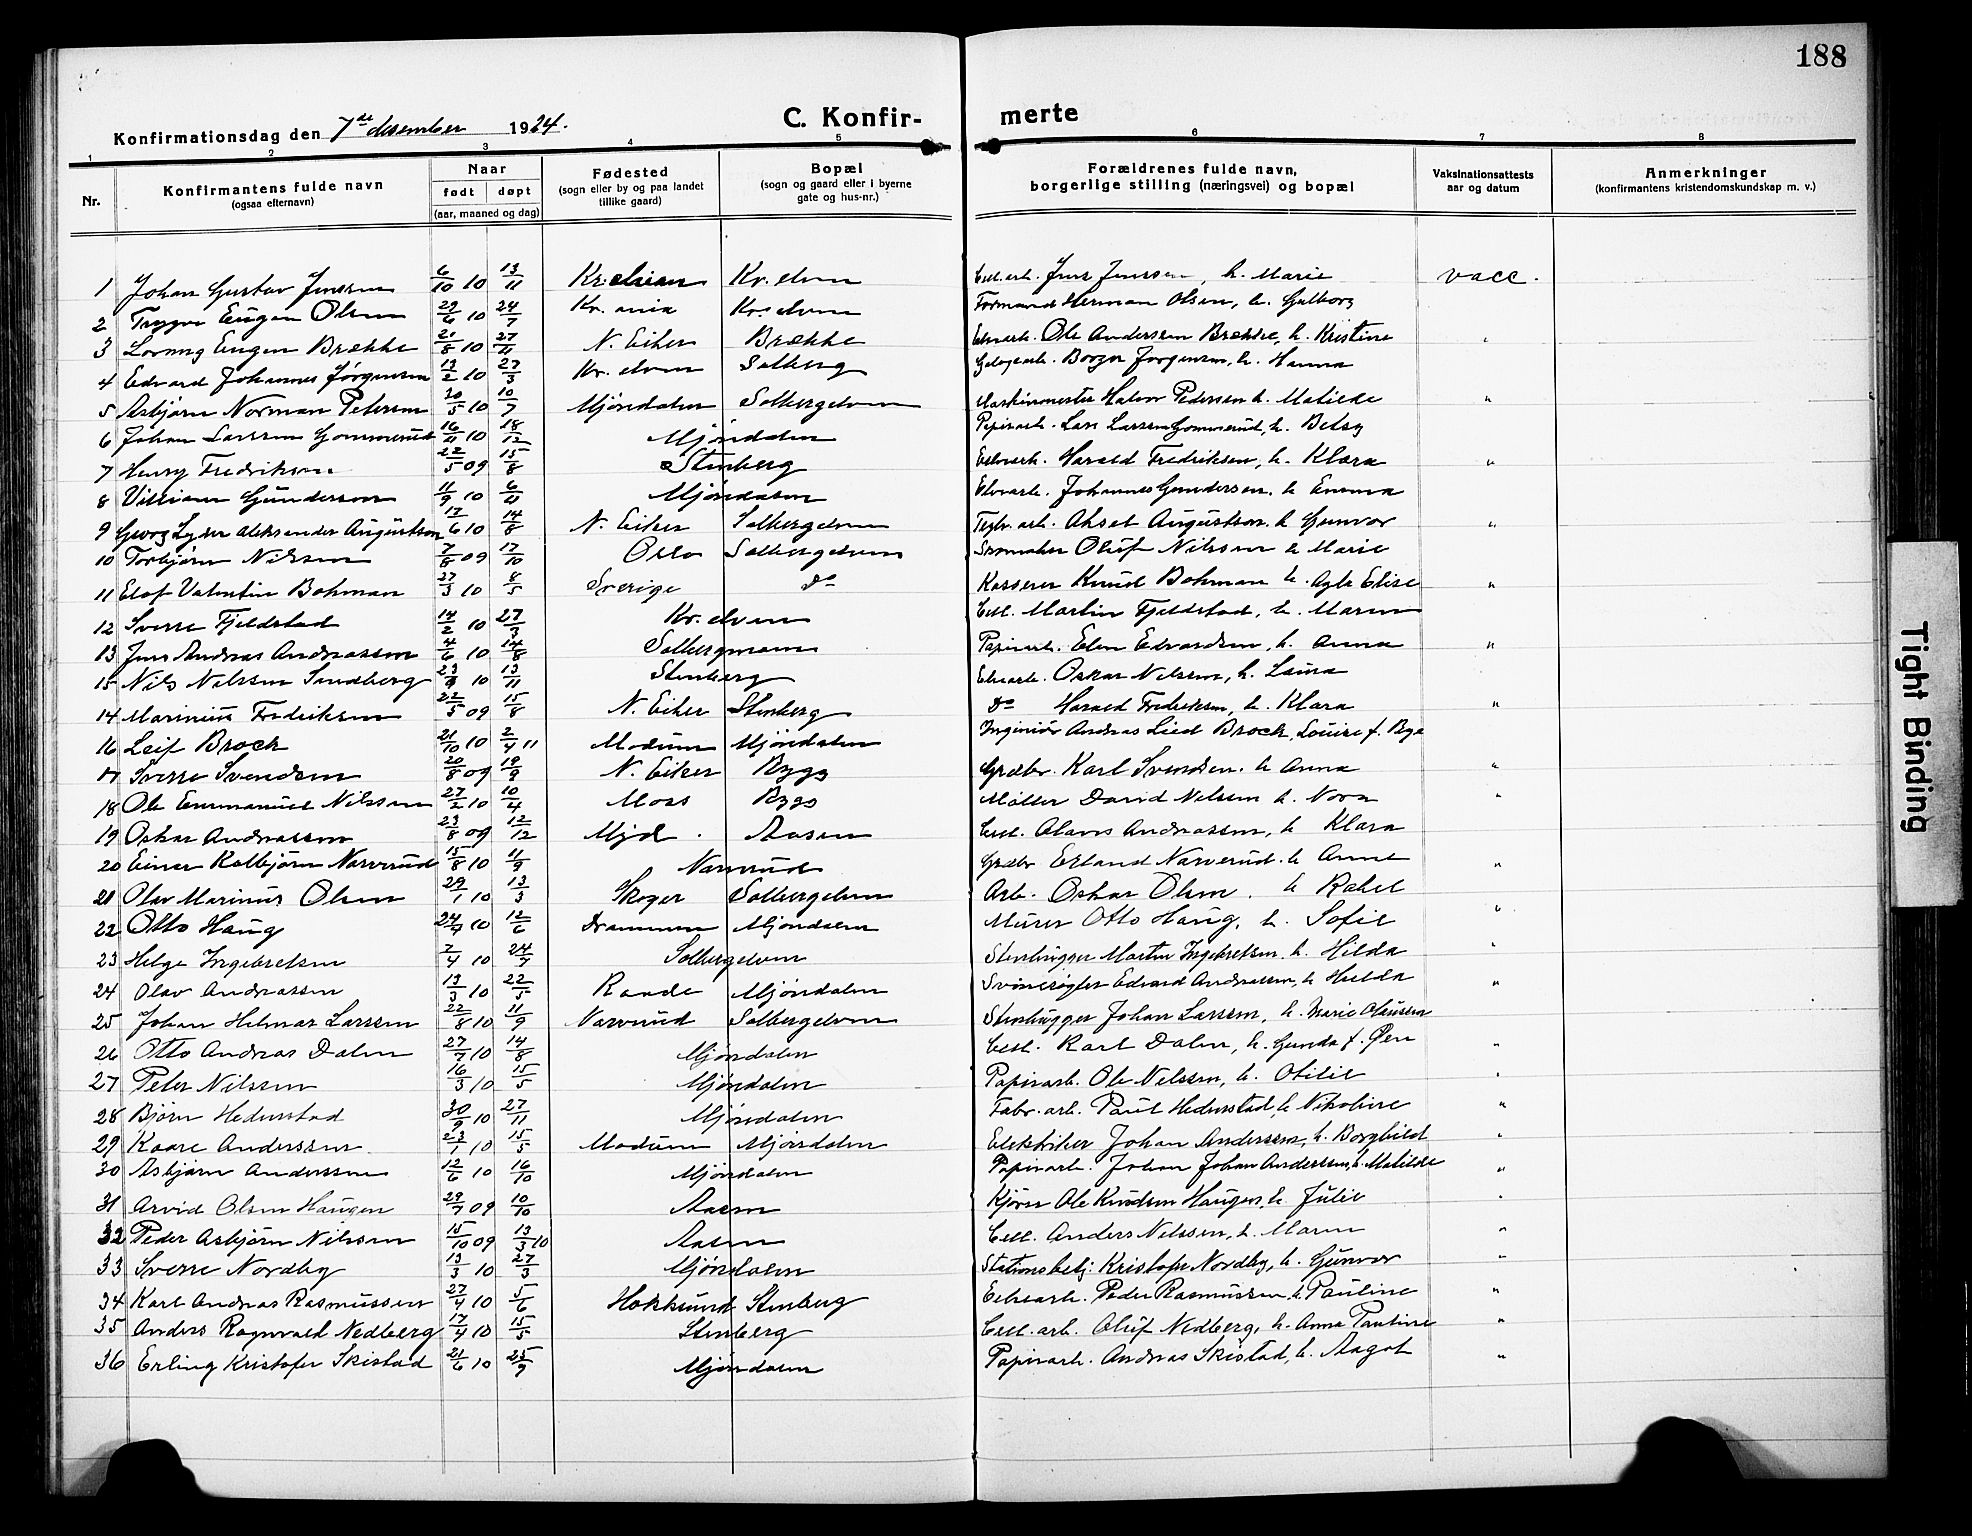 188
C. Konfir- merte
Konfirmationsdag den 7de desember 1924.
1 2 3 4 5 6 7 8
Nr.
Konfirmantens fulde navn
(ogsaa efternavn)
Naar
født døpt
(aar, maaned og dag)
Fødested
(sogn eller by og paa landet
tillike gaard)
Bopæl
(sogn og gaard eller i byerne
gate og hus-nr.)
Forældrenes fulde navn,
borgerlige stilling (næringsvei) og bopæl
Vaksinationsattests
aar og datum
Anmerkninger
(konfirmantens kristendomskundskap m. v.)
1 Johan Gustav Jensen 6/10 10 13/11 Kr. elven Cell. arb. Jens Jenssen, h. Marie vacc.
2 Trygve Eugen Olsen 29/6 10 24/7 Kr. ania Kr. elven Formand Herman Olsen, h. Galborg
3 Eugen Brække 21/8 10 27/11 N. Eiker Brække Elvearb. Ole Anderssen Brække, h. Kristine "
4 Edvard Johannes Jørgensen 13/2 10 27/3 Kr. elven Solberg Borger Jørgensen, h. Hanna
5 Asbjørn Norman Petersen 20/5 10 10/7 Mjøndalen Solbergelven Maskinmester Halvor Pedersen h. Matilde "
6 Johan Larssen Gommerud 16/11 10 18/12 Mjøndalen Papirarb. Lars Larssen Gommerud, h. Betsy
7 Henry Fredriksen 22/5 09 15/8 Stenberg Harald Fredriksen, h. Klara "
8 Villiam Gundersen 11/9 10 6/11 Mjøndalen Elvearb. Johannes Gundersen, h. Emma
9 Georg Lyder Aleksander Augustson 17/6 10 14/8 N. Eiker Solbergelven Teglv. arb. Aksel Augustson, h. Gunvor "
10 Torbjørn Nilsen 7/8 09 17/10 Oslo Solbergelven Oluf Nilssen h. Marie
11 Elof Valentin Bohman 27/3 10 8/5 Sverige Do Kasserer Knud Bohman h. Elise "
12 Sverre Fjeldstad 14/2 10 27/3 Kr. elven Cell. Martin Fjeldstad, h. Maren
13 Jens Andreas Andreassen 4/6 10 14/8 Solbergmoen Papirarb. Edvardsen, h. Anna "
15 Nils Nilssen Sundberg 10 13/11 Stenberg Elvearb. Oskar Nilssen, h. Laura
14 Marinius Fredriksen 22/5 09 15/8 N. Eiker Stenberg Do Harald Fredriksen, h. Klara "
16 Leif Brock 21/10 10 2/4 11 Modum Mjøndalen Ingeniør Andreas Lied Brock, Louise f. Bye
17 Sverre Svendsen 20/8 09 19/9 N. Eiker Bygg Grdbr. Karl Svendsen, h. Anna "
18 Ole Emmanuel Nilssen 27/2 10 10/4 Moss Bygg Møller David Nilssen h. Nora "
19 Oskar Andreassen 23/8 09 12/12 Mjd. Aasen Cell. Olaves Andreassen, h. Klara
20 Einar Kolbjørn Narverud 15/8 10 11/9 Narverud Grdbr. Erland Narverud, h. Anne "
21 Olav Marinus Olsen 29/1 10 13/3 Skoger Solbergelven Arb. Oskar Olsen, h. Rakel
22 Otto Haug 24/4 10 12/6 Drammen Mjøndalen Murer Otto Haug, h. Sofie "
23 Helge Ingebretsen 7/4 10 24/7 Solbergelven Stenhugger Martin Ingebretsen, h. Hilda "
24 Olav Andreassen 13/3 10 22/5 Raade Mjøndalen Svinerøgter Edvard Andreassen, h. Hulda "
25 Johan Helmar Larssen 22/8 10 11/9 Narverud Solbergelven Stenhugger Johan Larssen, h. Marie Olaussen
26 Otto Andreas Dalen 27/7 10 14/8 Mjøndalen Cell. Karl Dalen, h. Gunda f. Øen "
27 Peter Nilssen 16/3 10 15/5 Mjøndalen Papirarb. Ole Nilssen, h. Otilie "
28 Bjørn Hedenstad 30/9 10 27/11 Mjøndalen Fabr. arb. Paul Hedenstad, h. Nikoline "
29 Kaare Anderssen 23/1 10 15/5 Modum Mjøndalen Elektriker Johan Anderssen, h. Borghild "
30 Asbjørn Anderssen 12/6 10 16/10 Mjøndalen Papirarb. Johan Johan Anderssen, h. Matilde "
31 Arvid Olsen Haugen 29/7 09 10/10 Aasen Kjører Ole Knudsen Haugen, h. Julie "
32 Peder Asbjørn Nilssen 15/10 09 13/3 10 Aasen Cell. Anders Nilssen, h. Maren "
33 Sverre Nordby 13/3 10 27/3 Mjøndalen Stationsbetj. Kristofer Nordby, h. Gunvor "
34 Karl Andreas Rasmussen 27/4 10 5/6 Hokksund Stenberg Elvearb. Peder Rasmussen h. Pauline "
35 Anders Ragnvald Nedberg 17/4 10 15/5 Stenberg Cell. arb. Oluf Nedberg, h. Anna Pauline "
36 Erling Kristofer Skistad 21/6 10 25/9 Mjøndalen Papirarb. Andreas Skistad, h. Aagot "
Tight Binding